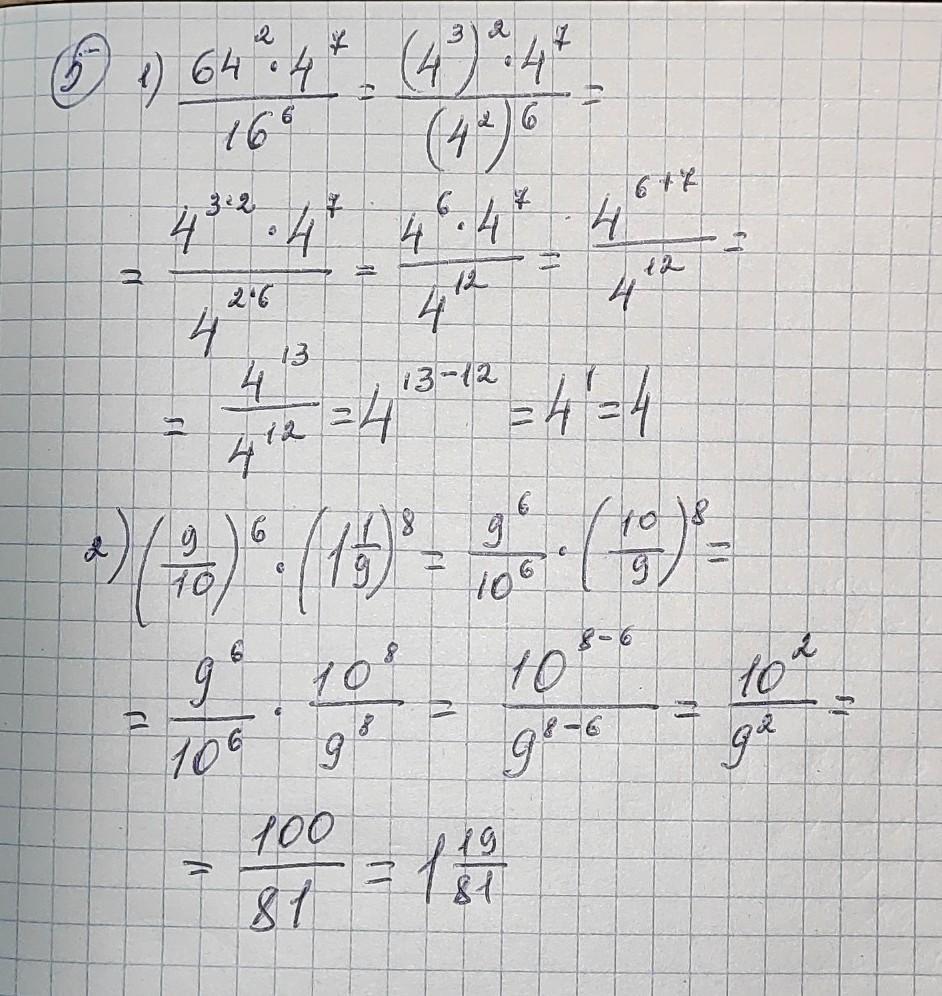 5 1) \frac{64^2 \cdot 4^7}{16^6} = \frac{(4^3)^2 \cdot 4^7}{(4^2)^6} =
= \frac{4^{3 \cdot 2} \cdot 4^7}{4^{2 \cdot 6}} = \frac{4^6 \cdot 4^7}{4^{12}} = \frac{4^{6+7}}{4^{12}} =
= \frac{4^{13}}{4^{12}} = 4^{13-12} = 4^1 = 4
2) (\frac{9}{10})^6 \cdot (1\frac{1}{9})^8 = \frac{9^6}{10^6} \cdot (\frac{10}{9})^8 =
= \frac{9^6}{10^6} \cdot \frac{10^8}{9^8} = \frac{10^{8-6}}{9^{8-6}} = \frac{10^2}{9^2} =
= \frac{100}{81} = 1\frac{19}{81}